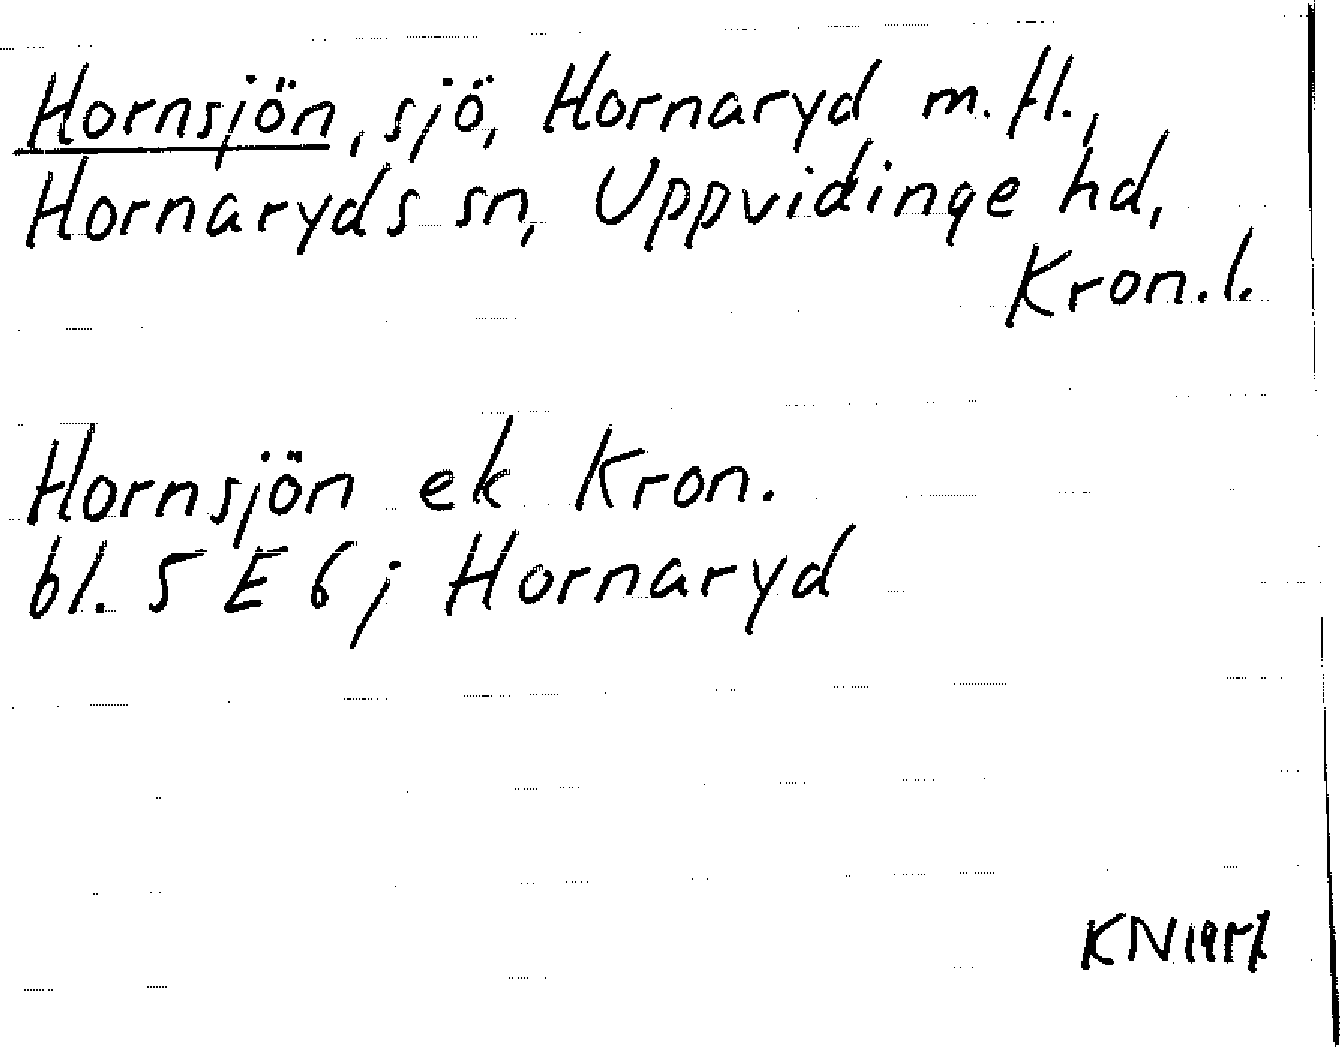 Hornsjön, sjö, Hornaryd m. fl.,
Hornaryds sn, Uppvidinge hd,
Kron. l.
Hornsjön ek Kron.
bl. 5 E 6 j Hornaryd
KN